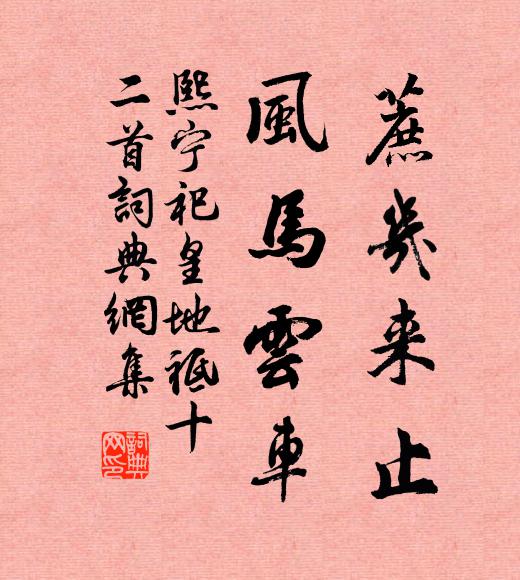 蔗幾来止
風馬雲車
熙宁祀皇地祇十
二首詞典網集
詞典
网印